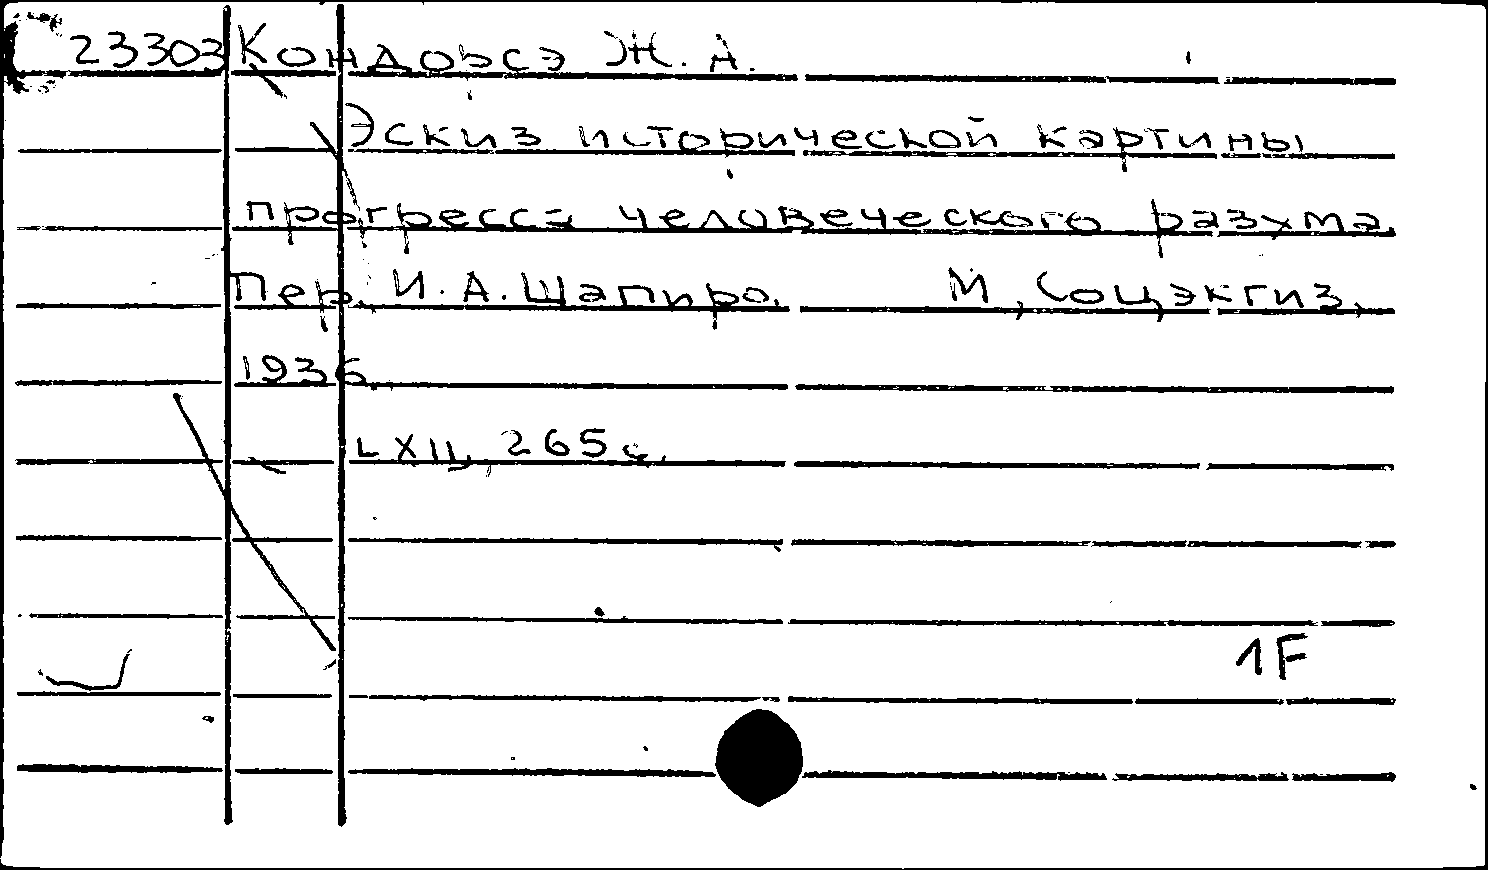 23303 Кондорсэ Ж. А.
Эскиз исторической картины
прогресса человеческого разума.
Пер. И. А. Шапиро. М, Соцэкгиз,
1936.
LXII, 265 с.
1F